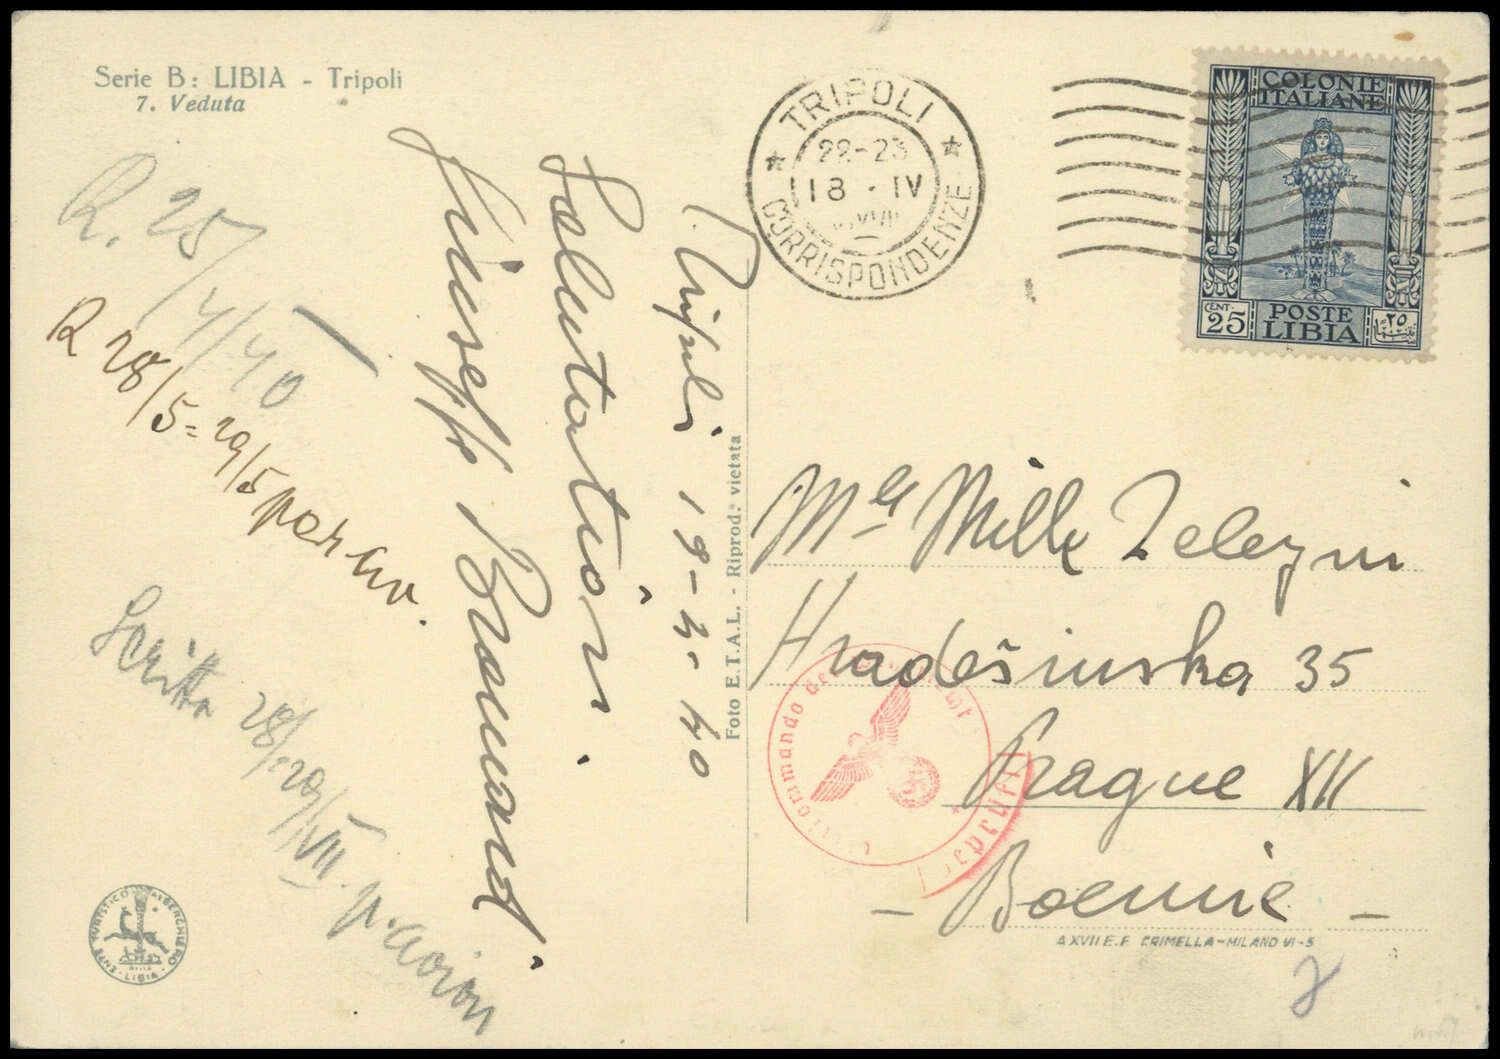 Serie B: LIBIA - Tripoli
7. Veduta
TRIPOLI
22-23
18 · IV
XVIII
CORRISPONDENZE
COLONIE
ITALIANE
CENT.
25
POSTE
LIBIA
٢٥
R. 25/4/40
R 28/5=29/5 par av.
Scritta 28/29/VII. p. avion
Tripoli 19-4-40
Salutations.
Giuseppe
Foto E.T.A.L. - Riprod. vietata
Mlle Mille Zelezni
Hradešinska 35
Prague XII
- Boemie -
Oberkommando der Wehrmacht
Geprüft
A XVII E. F. CRIMELLA - MILANO VI - 5
ENTE TURISTICO ALBERGHIERO
DELLA
LIBIA